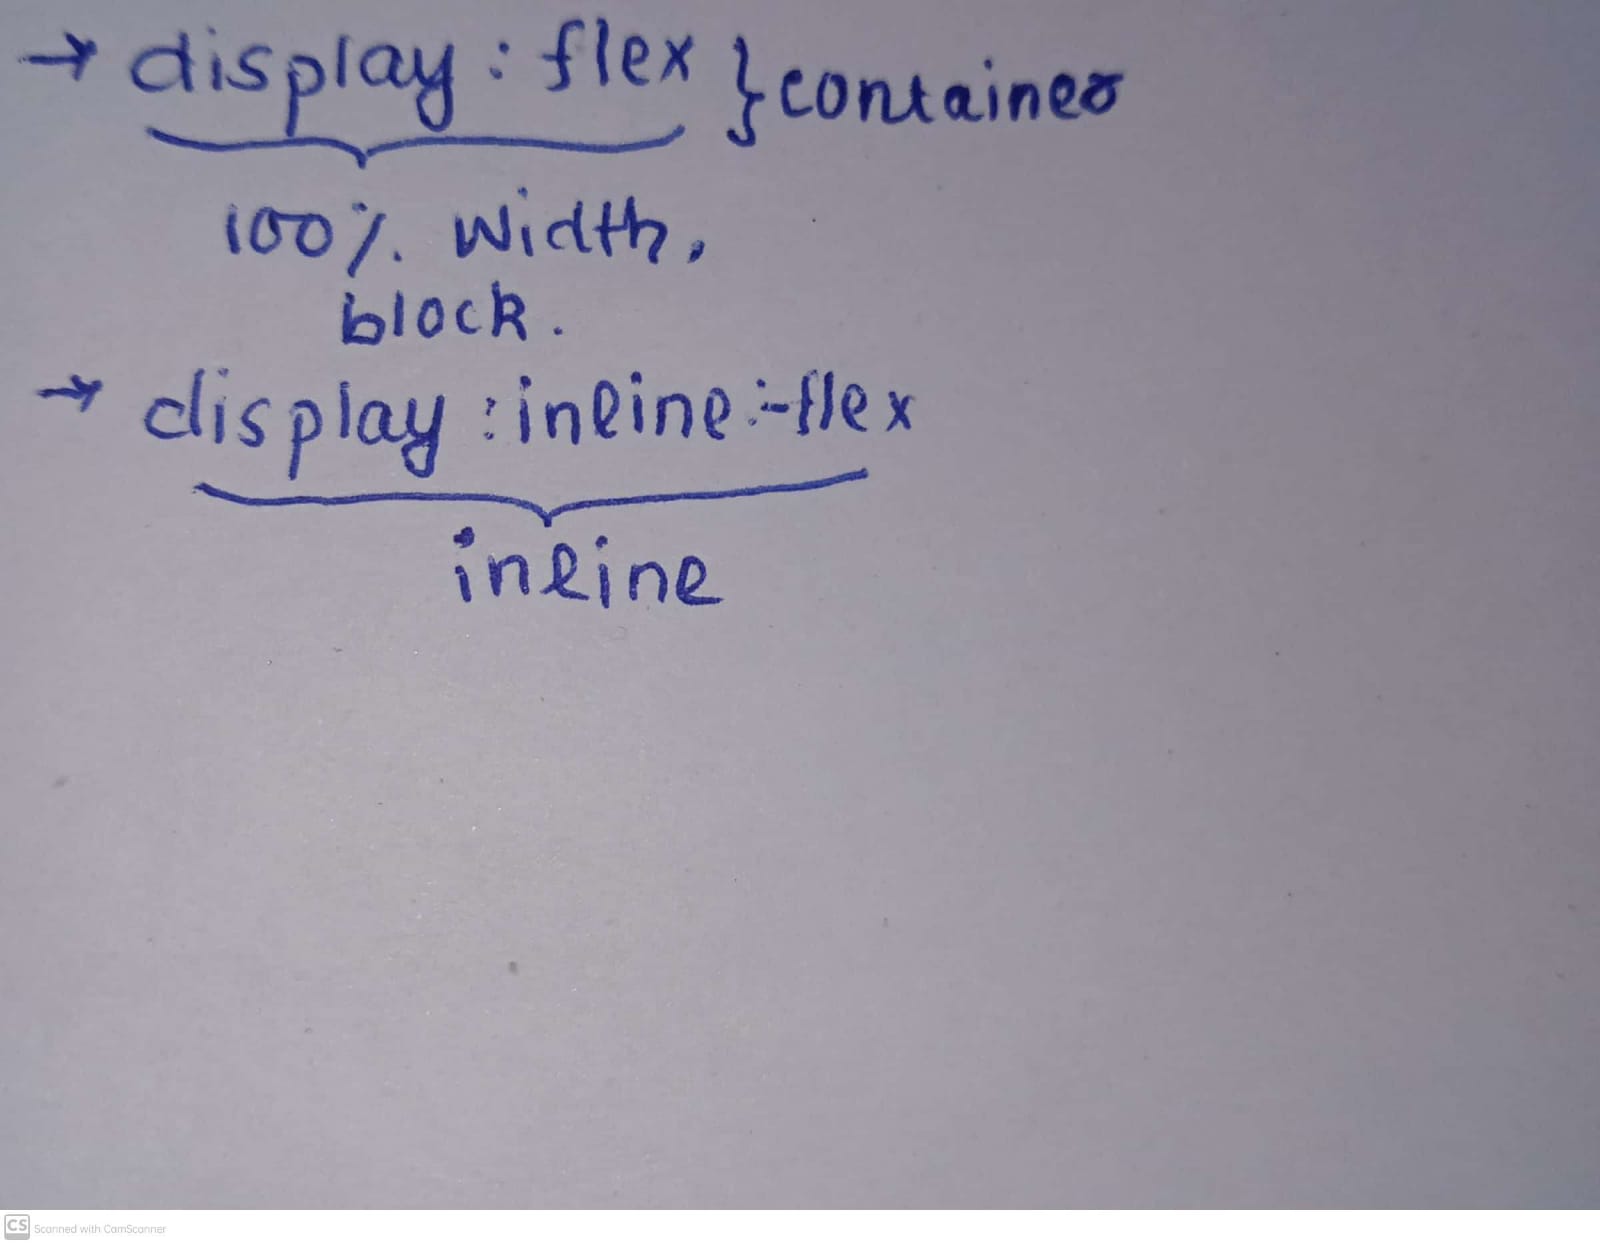 → display : flex } container
100% width,
block.
→ display : inline :- flex
inline
CS Scanned with CamScanner